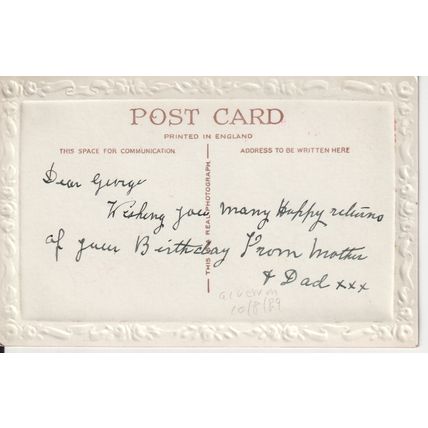 POST CARD
PRINTED IN ENGLAND
THIS SPACE FOR COMMUNICATION
ADDRESS TO BE WRITTEN HERE
THIS IS A REAL PHOTOGRAPH
Dear George
Wishing you many Happy returns
of your Birthday From Mother
& Dad xxx
10/8/89